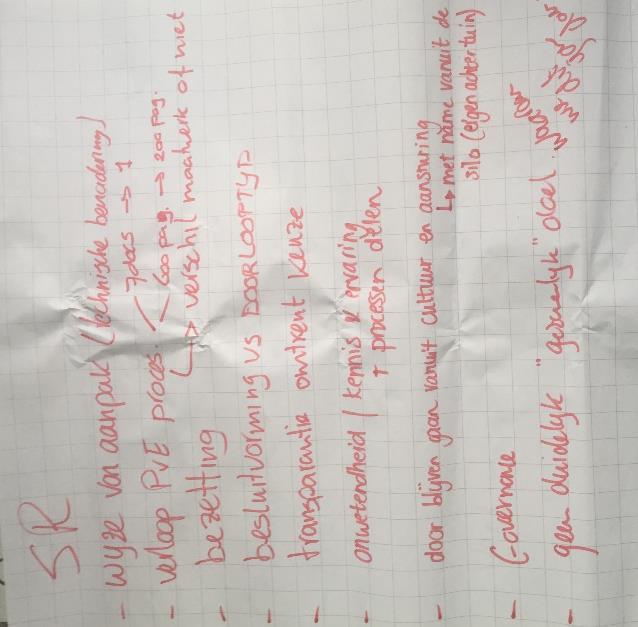 SR
- wyze van aanpak (technische benadering)
- verloop PvE proces. 7 docs → 1
600 pag. → 200 pag.
↳ verschil maatwerk of niet
- bezetting
- besluitvorming vs DOORLOOPTYD
- transparantie omtrent keuze
- onwetendheid / kennis & ervaring
+ processen delen
- door blijven gaan vanuit cultuur en aansturing
↳ met name vanuit de
silo (eigen achtertuin)
- Governance
- geen duidelyk "gezamelyk" doel.